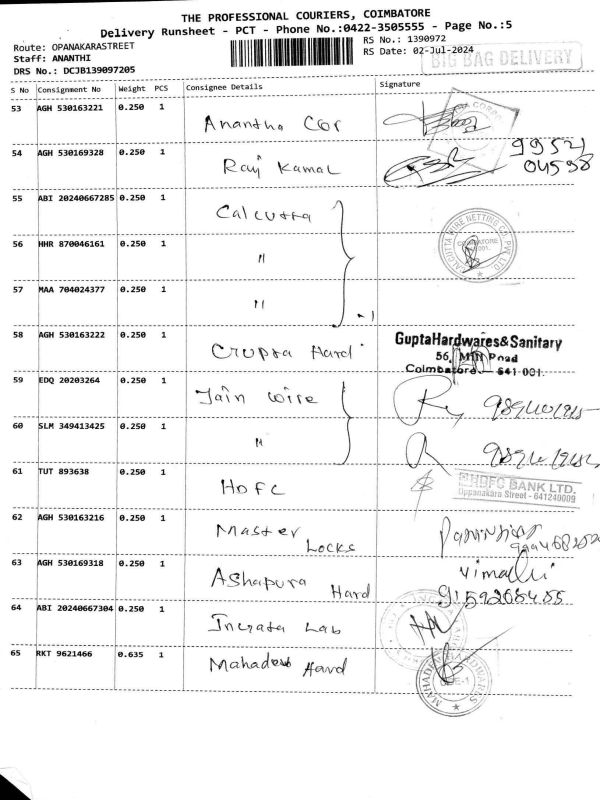 THE PROFESSIONAL COURIERS, COIMBATORE
Delivery Runsheet - PCT - Phone No.:0422-3505555 - Page No.:5
Route: OPANAKARASTREET
RS No.: 1390972
Staff: ANANTHI
RS Date: 02-Jul-2024
BIG BAG DELIVERY
DRS No.: DCJB139097205
S No Consignment No Weight PCS Consignee Details Signature
53 AGH 530163221 0.250 1 Anantha Cor
54 AGH 530169328 0.250 1 Raj Kamal 99521 04598
55 ABI 20240667285 0.250 1 Calcutta
56 HHR 870046161 0.250 1 "
CALCUTTA WIRE NETTING CO. PVT LTD
COIMBATORE
57 MAA 704024377 0.250 1 "
58 AGH 530163222 0.250 1 Gupta Hard
GuptaHardwares&Sanitary
56, Mill Road
Coimbatore - 641 001.
59 EDQ 20203264 0.250 1 Jain wire
60 SLM 349413425 0.250 1 "
61 TUT 893638 0.250 1 HDFC
HDFC BANK LTD.
Oppanakara Street - 641249009
62 AGH 530163216 0.250 1 Master Locks
63 AGH 530169318 0.250 1 Ashapura Hard
64 ABI 20240667304 0.250 1 Lab
65 RKT 9621466 0.635 1 Mahadev Hard
MAHADEV HARDWARES
CBE-1